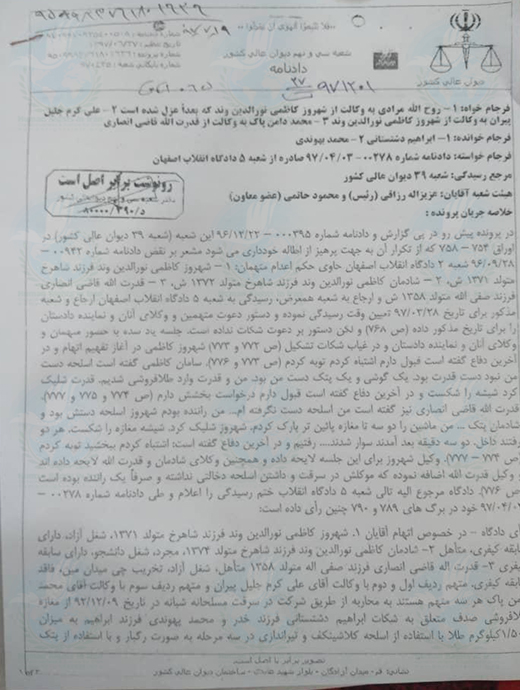 شعبه سی و نهم دیوان عالی کشور
دادنامه
دیوان عالی کشور
فرجام خواه: ۱- روح الله مرادی به وکالت از شهروز کاظمی نورالدین وند که بعداً عزل شده است ۲- علی کرم جلیل
پیران به وکالت از شهروز کاظمی نورالدین وند ۳- محمد دامن پاک به وکالت از قدرت الله قاضی انصاری
فرجام خوانده: ۱- ابراهیم دشتستانی ۲- محمد بهوندی
فرجام خواسته: دادنامه شماره ۰۰۲۷۸-۹۷/۰۴/۰۳ صادره از شعبه ۵ دادگاه انقلاب اصفهان
مرجع رسیدگی: شعبه ۳۹ دیوان عالی کشور
هیئت شعبه آقایان: عزیزاله رزاقی (رئیس) و محمود حاتمی (عضو معاون)
رونوشت برابر اصل است
خلاصه جریان پرونده:
در پرونده پیش رو در پی گزارش و دادنامه شماره ۰۰۰۳۹۵-۹۶/۱۲/۲۲ این شعبه (شعبه ۳۹ دیوان عالی کشور) در
اوراق ۷۵۴-۷۵۸ که از تکرار آن به جهت پرهیز از اطاله خودداری می شود مشعر بر نقض دادنامه شماره ۰۰۹۴۲-
۹۶/۰۹/۲۸ شعبه ۲ دادگاه انقلاب اصفهان حاوی حکم اعدام متهمان: ۱- شهروز کاظمی نورالدین وند فرزند شاهرخ
متولد ۱۳۷۱ ش، ۲- شادمان کاظمی نورالدین وند فرزند شاهرخ متولد ۱۳۷۲ ش، ۳- قدرت الله قاضی انصاری
فرزند صفی الله متولد ۱۳۵۸ ش و ارجاع به شعبه همعرض، رسیدگی به شعبه ۵ دادگاه انقلاب اصفهان ارجاع و شعبه
مذکور برای تاریخ ۹۷/۰۳/۲۸ تعیین وقت رسیدگی نموده و دستور دعوت متهمین و وکلای آنان و نماینده دادستان
را برای تاریخ مذکور داده (ص ۷۶۸) و لکن دستور بر دعوت شکات نداده است. جلسه یاد شده با حضور متهمان و
وکلای آنان و نماینده دادستان و در غیاب شکات تشکیل (ص ۷۷۲ و ۷۷۳) شهروز کاظمی در آغاز تفهیم اتهام و در
آخرین دفاع گفته است قبول دارم اشتباه کردم توبه کردم (ص ۷۷۳ و ۷۷۶). سامان کاظمی گفته است اسلحه دست
من نبود دست قدرت بود. یک گونی و یک پتک دست من بود. من و قدرت وارد طلافروشی شدیم. قدرت شلیک
کرد شیشه را شکست و در آخرین دفاع گفته است قبول دارم درخواست بخشش دارم (ص ۷۷۴ و ۷۷۵ و ۷۷۷).
قدرت الله قاضی انصاری نیز گفته است من اسلحه دست نگرفته ام... من راننده بودم شهروز اسلحه دستش بود و
شادمان پتک ... من ماشین را دو سه تا مغازه پائین تر پارک کردم. شهروز شلیک کرد. شیشه مغازه را شکست. هر دو
رفتند داخل. دو سه دقیقه بعد آمدند سوار شدند... رفتیم و در آخرین دفاع گفته است: اشتباه کردم ببخشید توبه کردم
(ص ۷۷۴ - ۷۷۷). وکیل شهروز برای این جلسه لایحه داده و همچنین وکلای شادمان و قدرت الله لایحه داده اند
وکیل قدرت الله اضافه نموده که موکلش در سرقت و داشتن اسلحه دخالتی نداشته و صرفاً یک راننده بوده است
ص ۷۷۶). دادگاه مرجوع الیه ثالی شعبه ۵ دادگاه انقلاب ختم رسیدگی را اعلام و طی دادنامه شماره ۰۰۲۷۸-
۹۷/۰۴/۰ خود در برگ های ۷۸۹ و ۷۹۰ چنین رأی داده است:
ی دادگاه - در خصوص اتهام آقایان ۱. شهروز کاظمی نورالدین وند فرزند شاهرخ متولد ۱۳۷۱، شغل آزاد، دارای
بقه کیفری، متأهل ۲- شادمان کاظمی نورالدین وند فرزند شاهرخ متولد ۱۳۷۴، مجرد، شغل دانشجو، دارای سابقه
فری ۳- قدرت اله قاضی انصاری فرزند صفی اله متولد ۱۳۵۸ متأهل، شغل آزاد، تخریب چی میدان مین، فاقد
بقه کیفری. متهم ردیف اول و دوم با وکالت آقای علی کرم جلیل پیران و متهم ردیف سوم با وکالت آقای محمد
من پاک هر سه متهم هستند به محاربه از طریق شرکت در سرقت مسلحانه شبانه در تاریخ ۹۲/۱۲/۰۹ از مغازه
لافروشی صدف متعلق به شکات ابراهیم دشتستانی فرزند خدر و محمد بهوندی فرزند ابراهیم به میزان
۱/۵۰کیلوگرم طلا با استفاده از اسلحه کلاشینکف و تیراندازی در سه مرحله به صورت رگبار و با استفاده از پتک
تصویر برابر با اصل است.